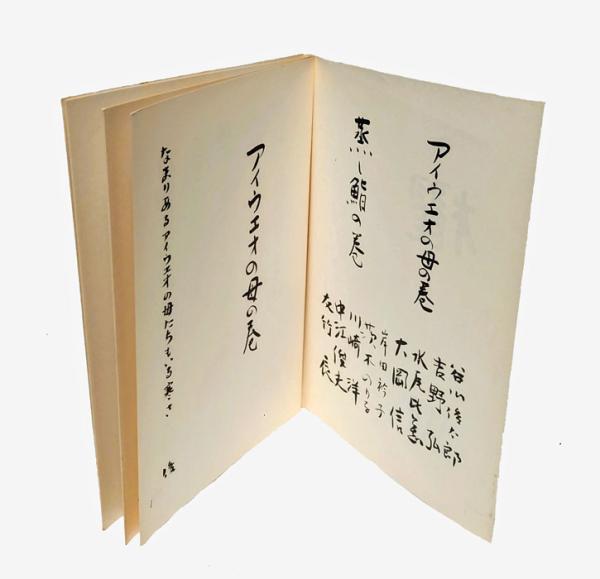 アイウエオの母の巻
蒸し鮨の巻
谷川俊太郎
吉野弘
水尾比呂志
大岡信
岸田衿子
茨木のり子
川崎洋
中江俊夫
友竹辰
アイウエオの母の巻
なまりあるアイウエオの母
俊